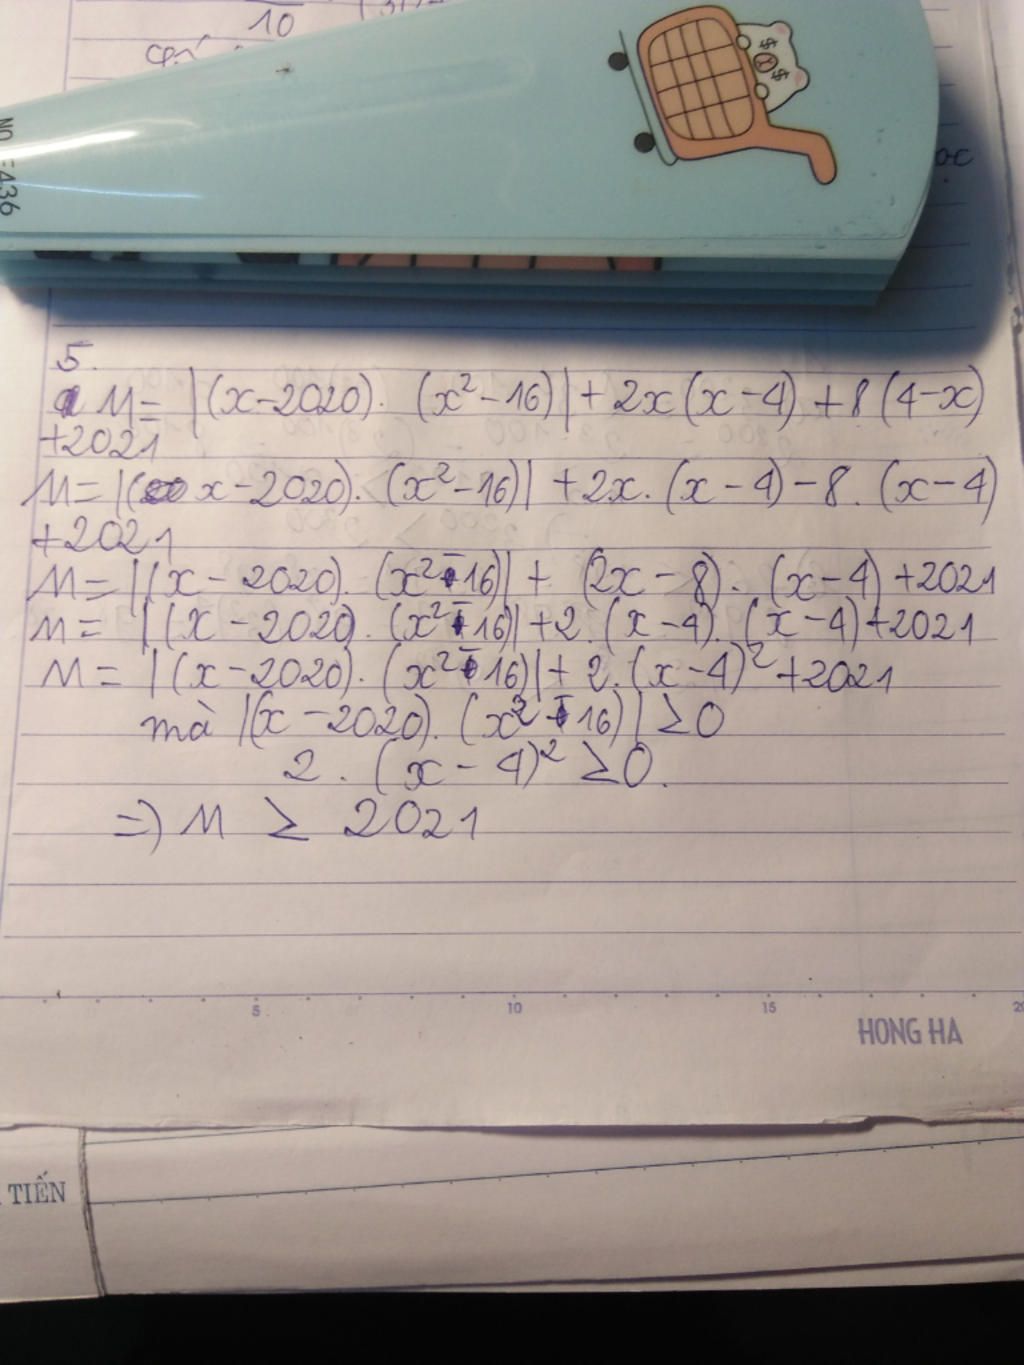 10
NO.:436
5.
a M= |(x-2020). (x²-16)|+2x(x-4)+8(4-x)
+2021
M=|(x-2020).(x²-16)| +2x.(x-4)-8.(x-4)
+2021
M=|(x-2020).(x²-16)|+ (2x-8).(x-4)+2021
M= |(x-2020).(x²-16)|+2.(x-4).(x-4)+2021
M= |(x-2020).(x²-16)|+2.(x-4)²+2021
mà |(x-2020).(x²-16)|≥0
2.(x-4)²≥0.
=> M ≥ 2021
5 10 15 20
HONG HA
TIẾN